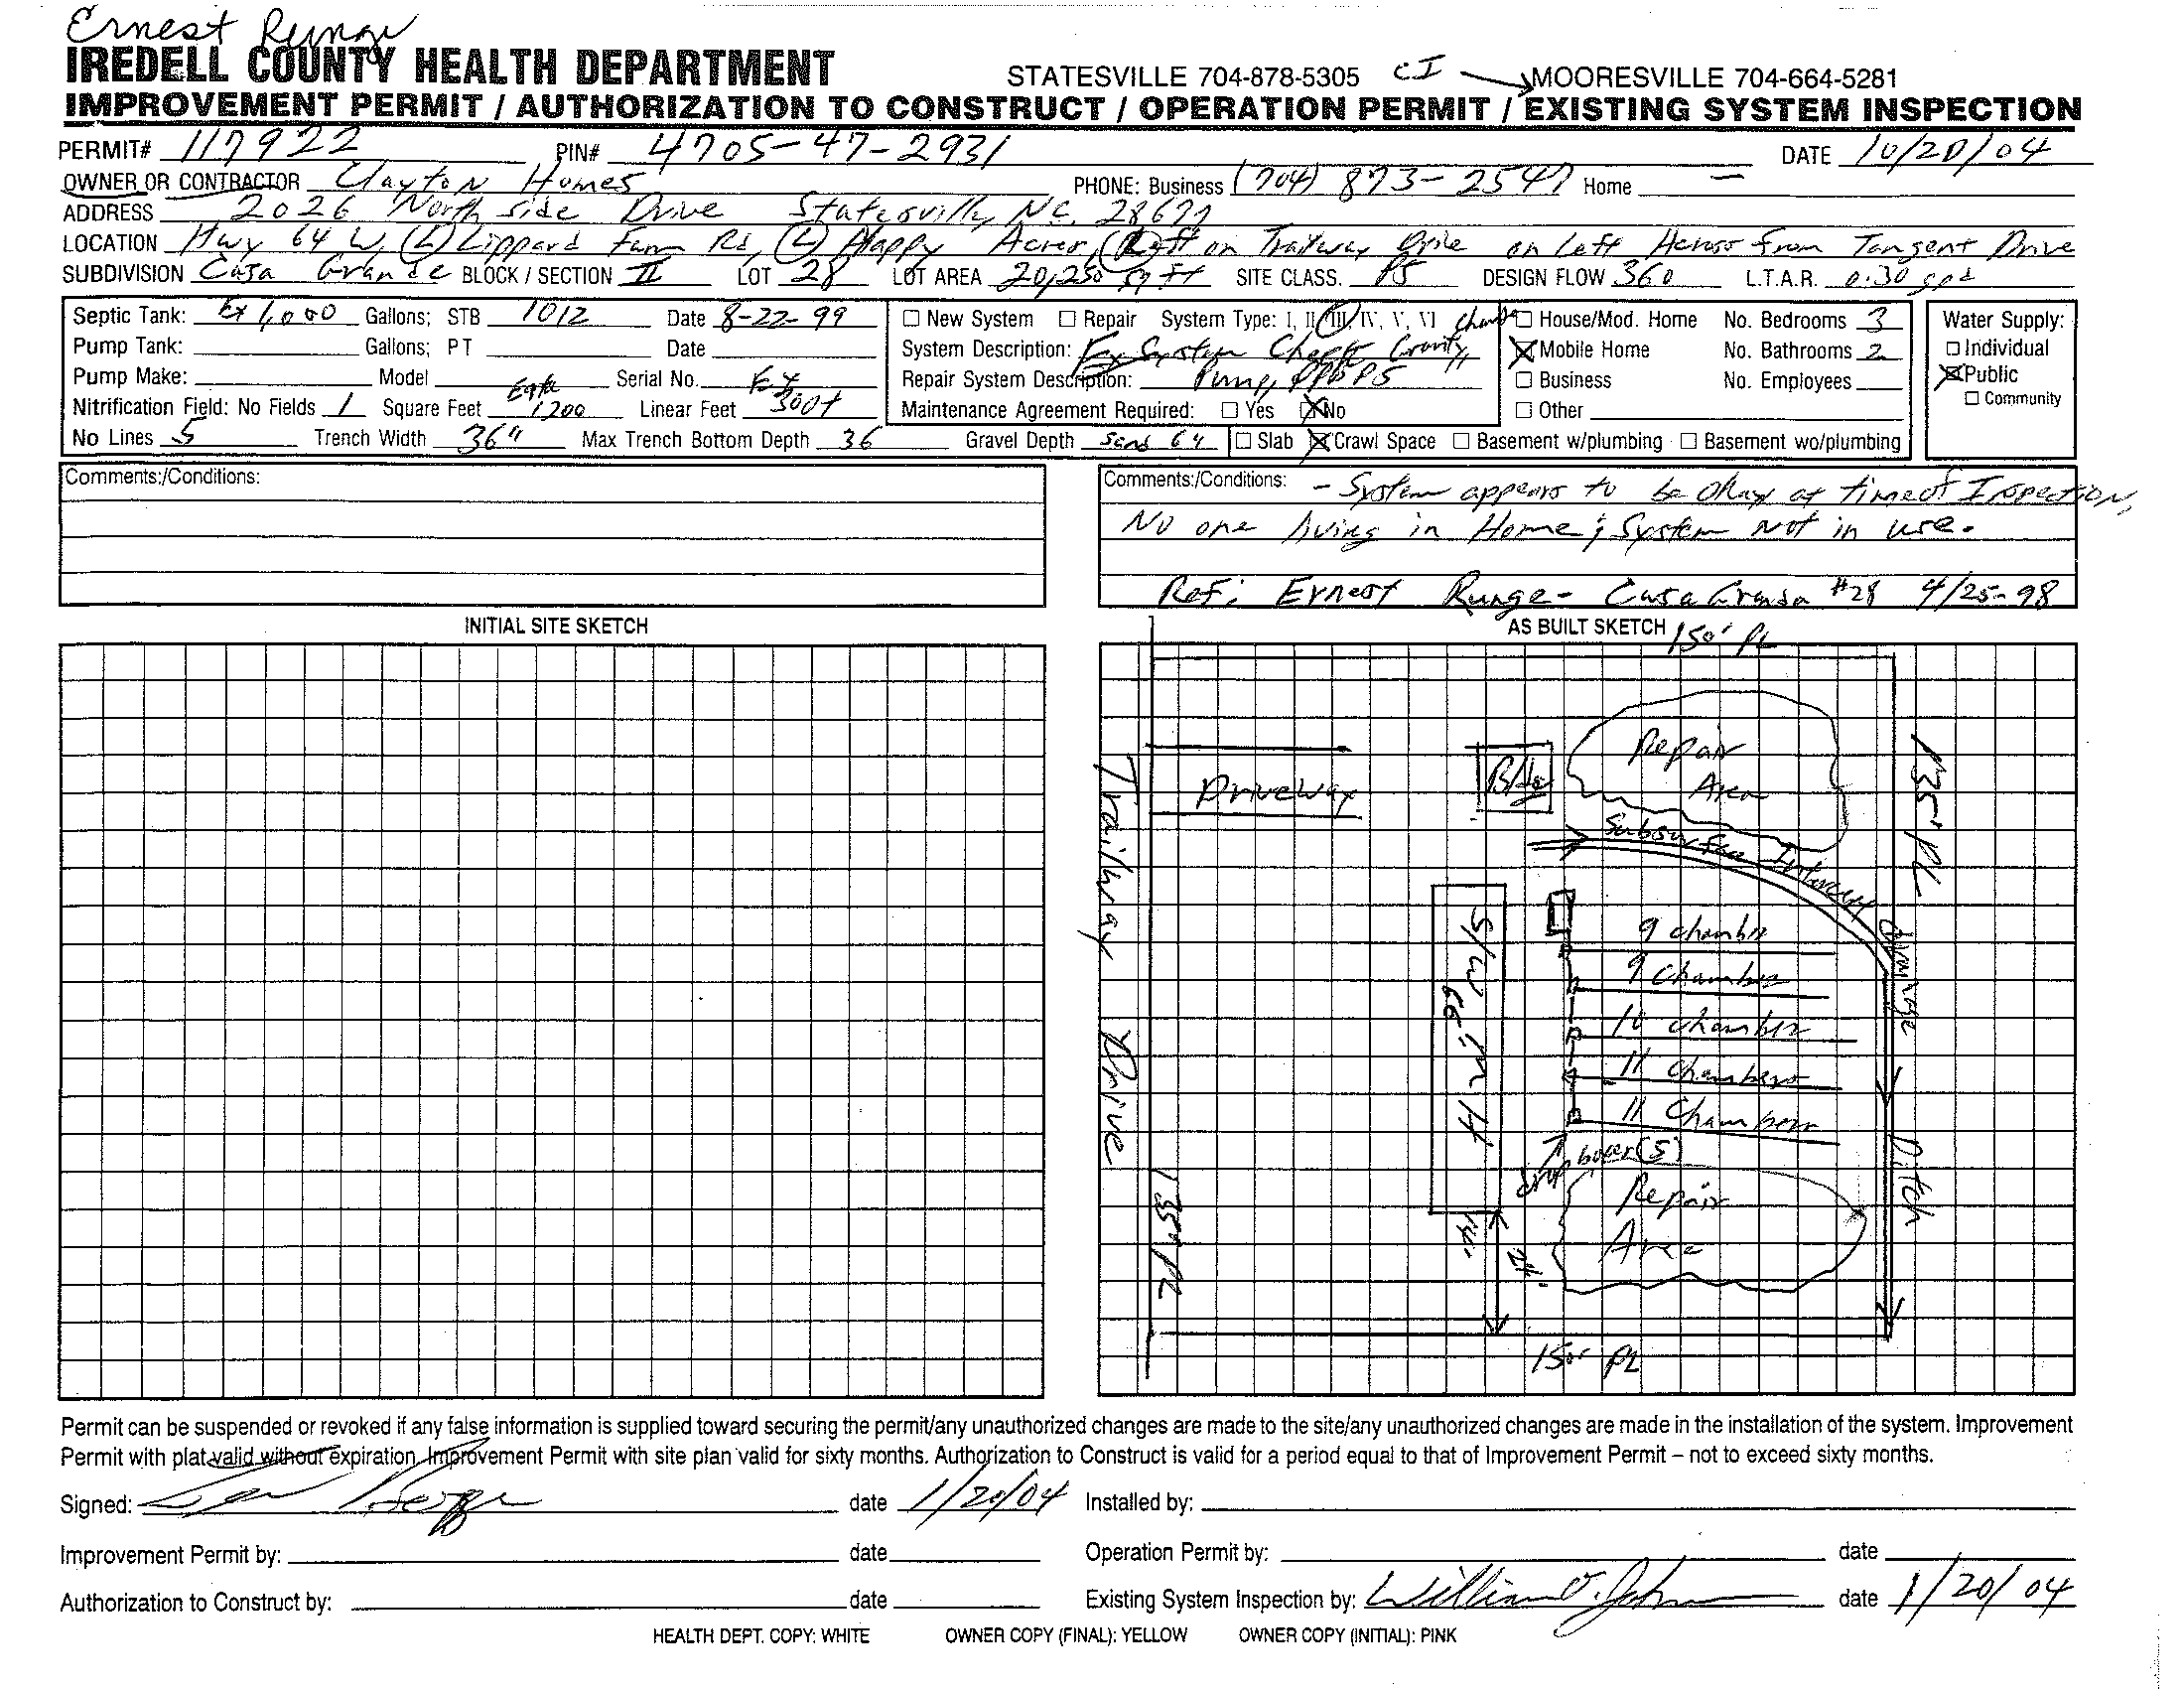 Ernest Runge
IREDELL COUNTY HEALTH DEPARTMENT
STATESVILLE 704-878-5305 CI MOORESVILLE 704-664-5281
IMPROVEMENT PERMIT / AUTHORIZATION TO CONSTRUCT / OPERATION PERMIT / EXISTING SYSTEM INSPECTION
PERMIT# 117922 PIN# 4705-47-2931 DATE 10/20/04
OWNER OR CONTRACTOR Clayton Homes PHONE: Business (704) 873-2547 Home —
ADDRESS 2026 North side Drive Statesville, NC. 28677
LOCATION Hwy 64 W, (L) Lippard Farm Rd, (L) Happy Acres, Left on Trailway Drive on Left Across from Tangent Drive
SUBDIVISION Casa Grande BLOCK / SECTION II LOT 28 LOT AREA 20,250 sq ft SITE CLASS. PS DESIGN FLOW 360 L.T.A.R. 0.30 gpd
Septic Tank: Ex 1,000 Gallons; STB 1012 Date 8-22-99
Pump Tank: Gallons; PT Date
Pump Make: Model Serial No.
Nitrification Field: No Fields 1 Square Feet 1200 Linear Feet Ex 300+
No Lines 5 Trench Width 36" Max Trench Bottom Depth 36 Gravel Depth
New System Repair System Type: I, II, III, IV, V, VI
System Description: Ex System Gravity
Repair System Description: Pump, PPBPS
Maintenance Agreement Required: Yes No
House/Mod. Home No. Bedrooms 3
Mobile Home No. Bathrooms 2
Business No. Employees
Other
Slab Crawl Space Basement w/plumbing Basement wo/plumbing
Water Supply:
Individual
Public
Community
Comments:/Conditions:
Comments:/Conditions: - System appears to be okay at time of Inspection,
No one living in Home; System not in use.
Ref: Ernest Runge - Casa Grande #28 4/25-98
INITIAL SITE SKETCH
AS BUILT SKETCH
150' PL
Repair
Area
Driveway
Bldg
135' PL
Subsurface Intercept Drainage Ditch
Trailway Drive
S/W 66' MH
9 chambers
9 chambers
10 chambers
11 chambers
11 Chambers
drop boxes (5)
Repair
Area
135' PL
24'
150' PL
Permit can be suspended or revoked if any false information is supplied toward securing the permit/any unauthorized changes are made to the site/any unauthorized changes are made in the installation of the system. Improvement
Permit with plat valid without expiration. Improvement Permit with site plan valid for sixty months. Authorization to Construct is valid for a period equal to that of Improvement Permit – not to exceed sixty months.
Signed: date 1/20/04 Installed by:
Improvement Permit by: date Operation Permit by: date
Authorization to Construct by: date Existing System Inspection by: William date 1/20/04
HEALTH DEPT. COPY: WHITE OWNER COPY (FINAL): YELLOW OWNER COPY (INITIAL): PINK